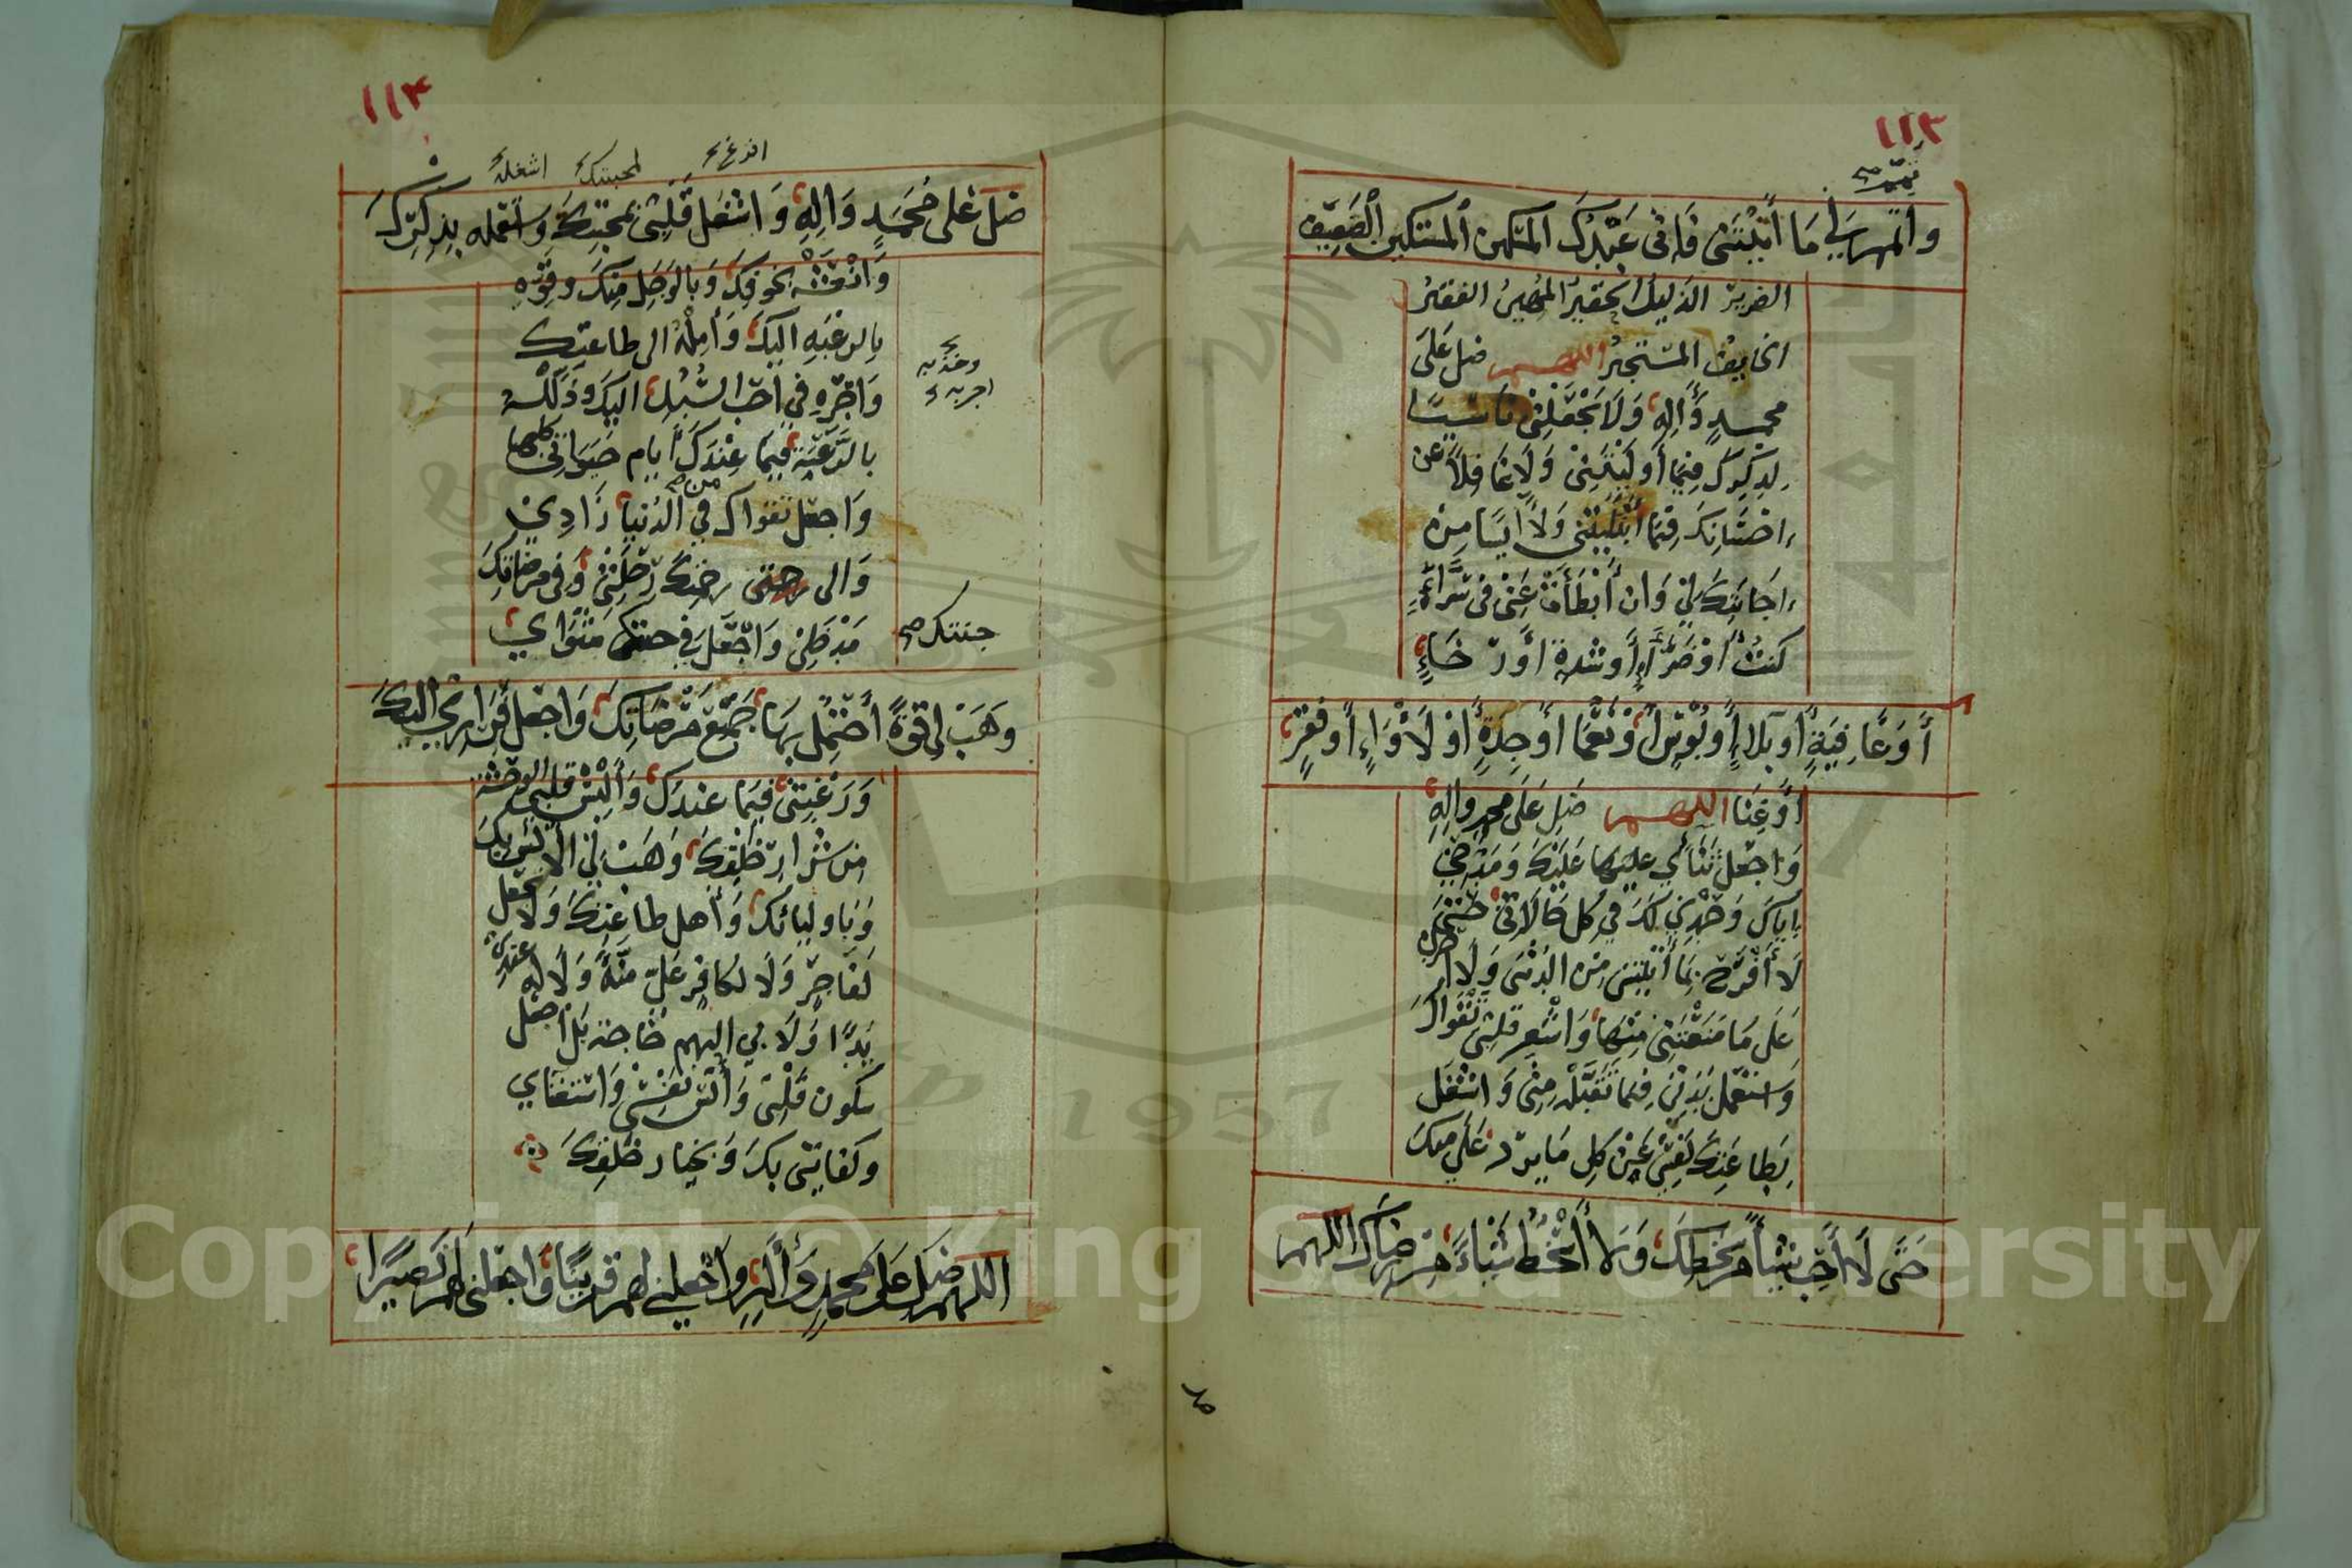 ١١٣
تممه
واتمم لي ما أبليتني فإني عبدك المتكبن المستكين الضعيف
الضرير الذليل الحقير المهين الفقير
الخايف المستجير اللهم صل على
محمد واله ولا تجعلني ناسيًا
لذكرك فيما أوليتني ولا غافلًا عن
احسانك فيما أبليتني ولا ايسا من
اجابتك لي وان أبطأت عني في سراء
كنت أو ضراء أو شدة أو رخاء
أو عافية أو بلاء أو بؤس أو نعما أو جدة أو لأواء أو فقر
أو غنا اللهم صل على محمد واله
واجعل ثنائي عليك ومدحي
اياك وحمدي لك في كل حالاتي حتى
لا أفرح بما أتيتني من الدنيا ولا أحزن
على ما منعتني منها وأشعر قلبي تقواك
واستعمل بدني فيما تقبله مني واشغل
بطاعتك نفسي عن كل ما يرد علي منك
حتى لا أحب شيئًا من سخطك ولا أسخط شيئاً من رضاك اللهم
١١٤
افرغ لمحبتك اشغله
صل على محمد واله وا قلبي لمحبتك واستعمله بذكرك
وانعشه بخوفك وبالوجل منك وقوه
بالرغبة اليك وأمله الى طاعتك
وأجره في أحب السبل اليك وذلله
وخذ به
اجر به
بالرغبة فيما عندك أيام حيواتي كلها
واجعل تقواك في الدنيا زادي
من
والى رحمتك رحلتي وفي مرضاتك
مدخلي واجعل في جنتك مثواي
جنتك صح
وهب لي قوة أحتمل بها جميع مرضاتك واجعل فراري اليك
ورغبتي فيما عندك وألبس قلبي الوحشة
من شرار خلقك وهب لي الأنس بك
وباوليائك وأهل طاعتك ولا تجعل
لفاجر ولا لكافر علي منة ولا له عندي
يدًا ولا بي اليهم حاجة بل اجعل
سكون قلبي وأنس نفسي واستغناي
وكفايتي بك وبخيار خلقك
اللهم صل على محمد وأله واجعلني لهم قرينًا واجعلني لهم نصيرًا
Copyright © King Saud University
1957